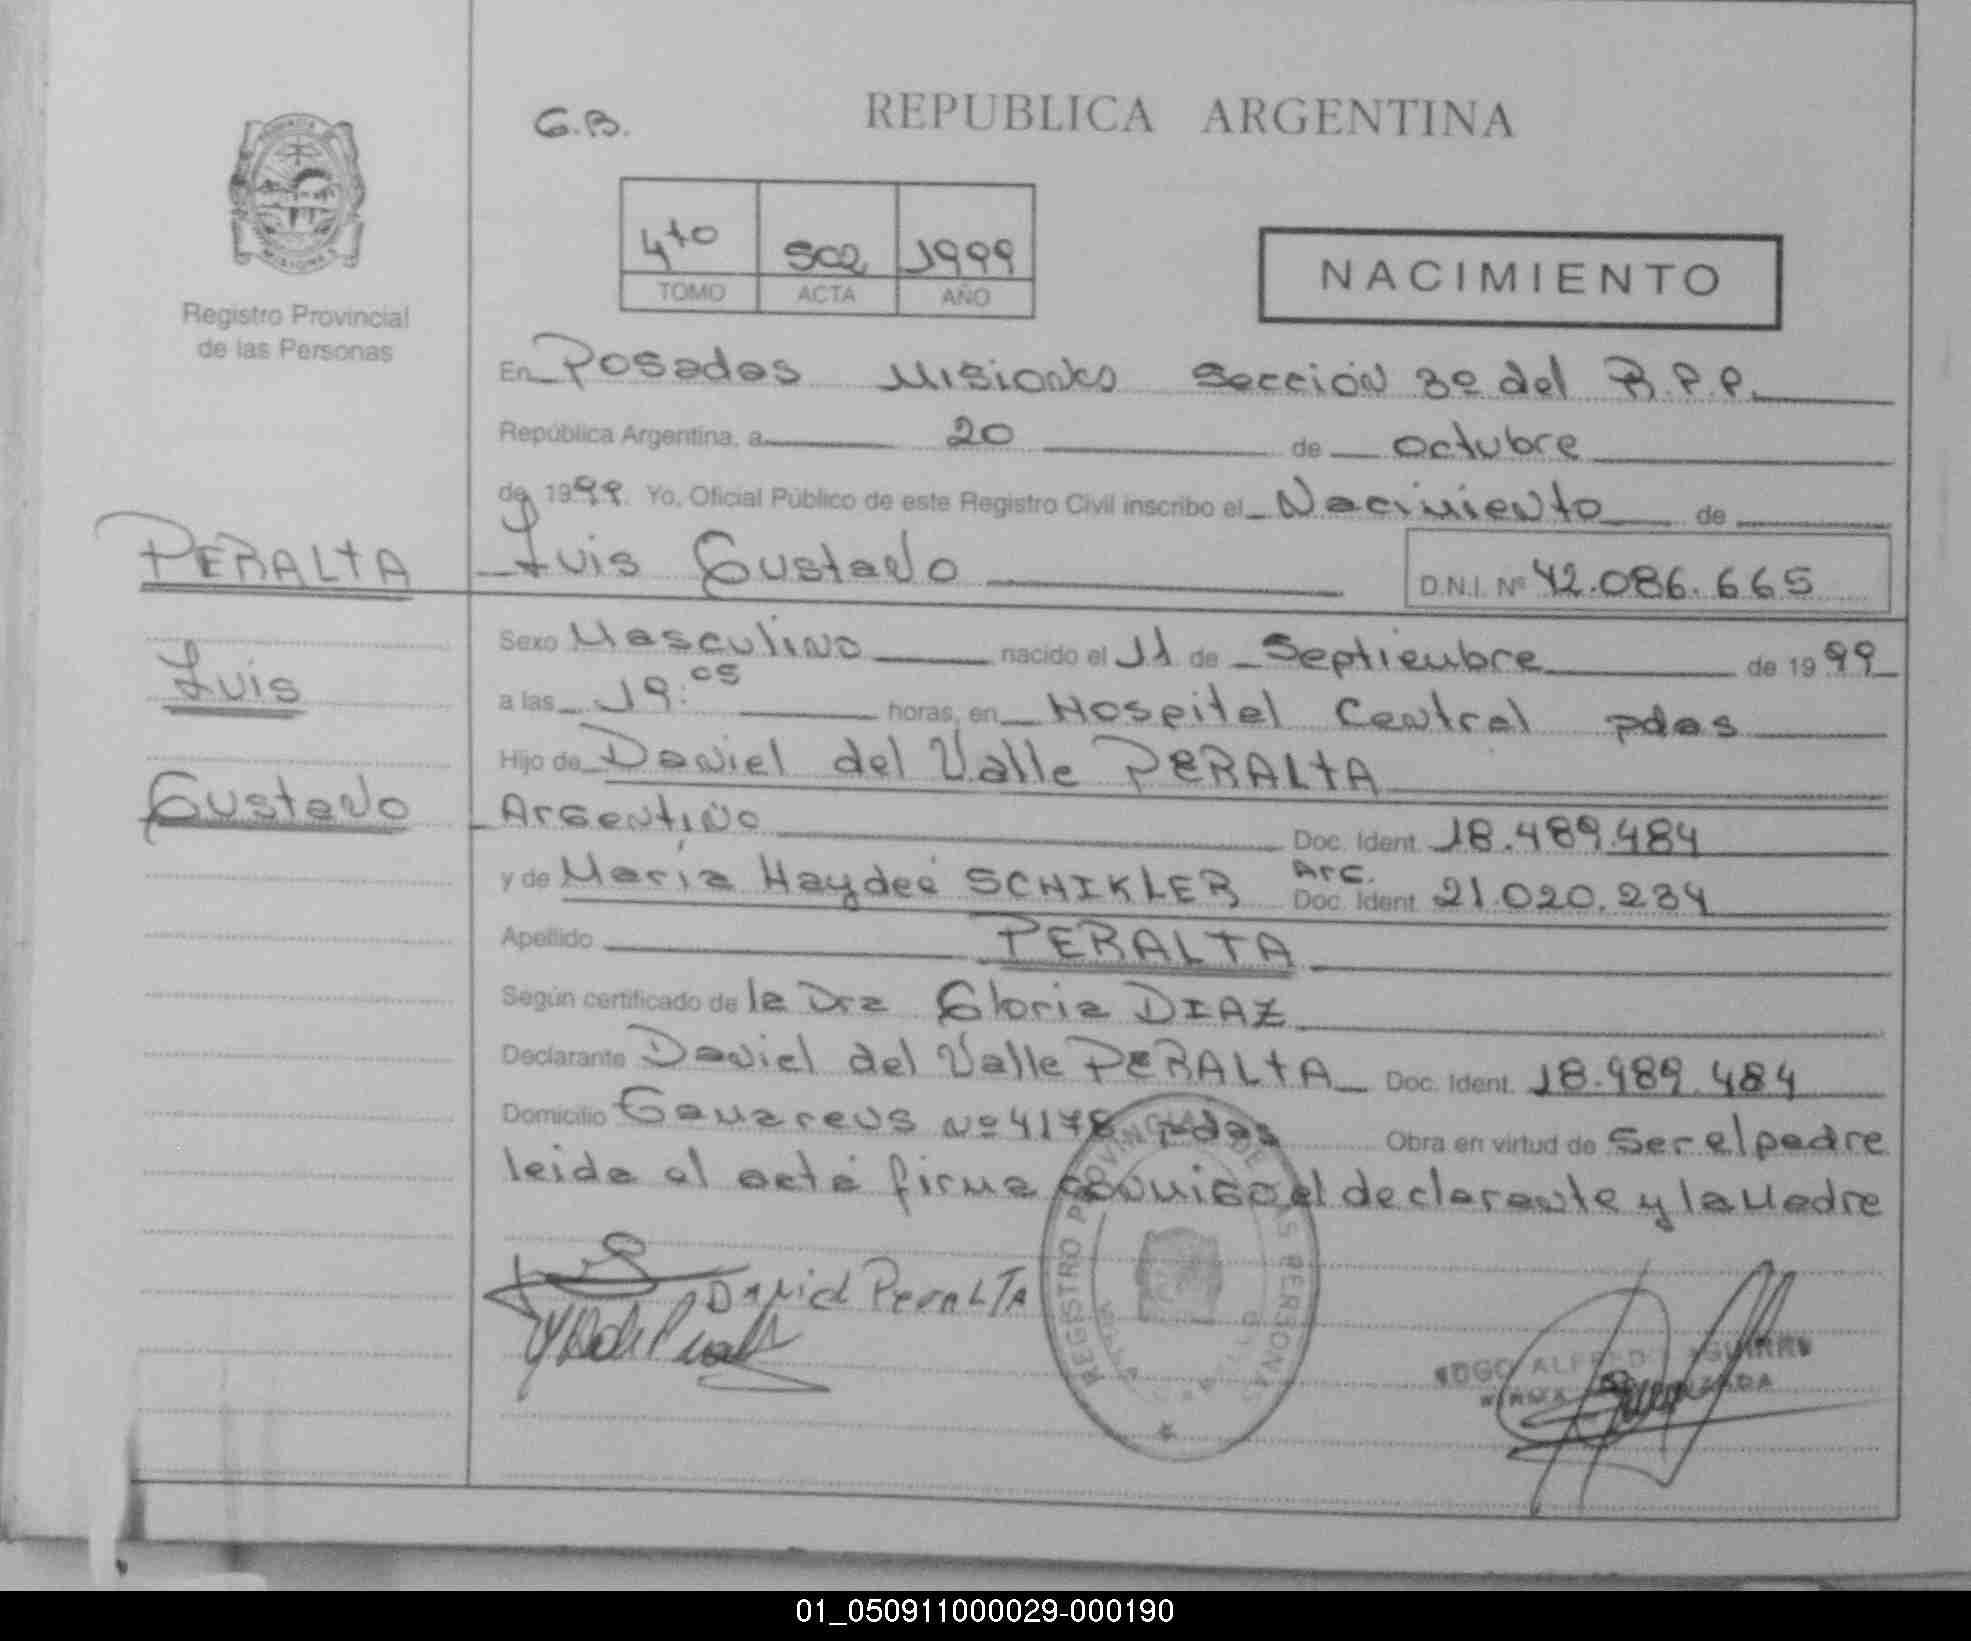 G.B.
REPUBLICA ARGENTINA
4to 502 1999
TOMO ACTA AÑO
NACIMIENTO
Registro Provincial
de las Personas
En Posadas Misiones Sección 3º del R.P.P.
República Argentina, a 20 de octubre
de 1999. Yo, Oficial Público de este Registro Civil inscribo el Nacimiento de
PERALTA Luis Gustavo D.N.I. Nº 42.086.665
Sexo Masculino nacido el 11 de Septiembre de 1999
Luis
a las 19:05 horas, en Hospital Central pdas
Hijo de Daniel del Valle PERALTA
Gustavo
Argentino Doc. Ident. 18.489.484
y de María Haydeé SCHIKLER Arg. Doc. Ident. 21.020.234
Apellido PERALTA
Según certificado de la Dra Gloria DIAZ
Declarante Daniel del Valle PERALTA Doc. Ident. 18.489.484
Domicilio Nº 4178 pdas Obra en virtud de ser el padre
leida el acta firma conmigo el declarante y la Madre
Daniel PeraLTA
REGISTRO PROVINCIAL DE LAS PERSONAS
01_050911000029-000190